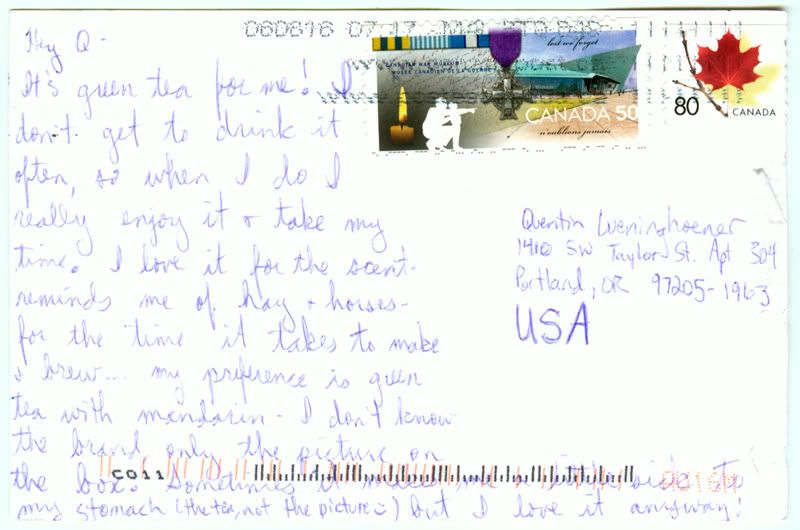 Hey Q-
It's green tea for me! I
don't get to drink it
often, so when I do I
really enjoy it & take my
time. I love it for the scent-
reminds me of hay & horses-
for the time it takes to make
& brew... my preference is green
tea with mandarin - I don't know
the brand only the picture on
the box. Sometimes it makes me a little sick to
my stomach (the tea, not the picture :) but I love it anyway!
060616 07:17
lest we forget
CANADIAN WAR MUSEUM
MUSÉE CANADIEN DE LA GUERRE
CANADA 50
n'oublions jamais
80 CANADA
Quentin
1410 SW Taylor St. Apt 304
Portland, OR 97205-1963
USA
C011